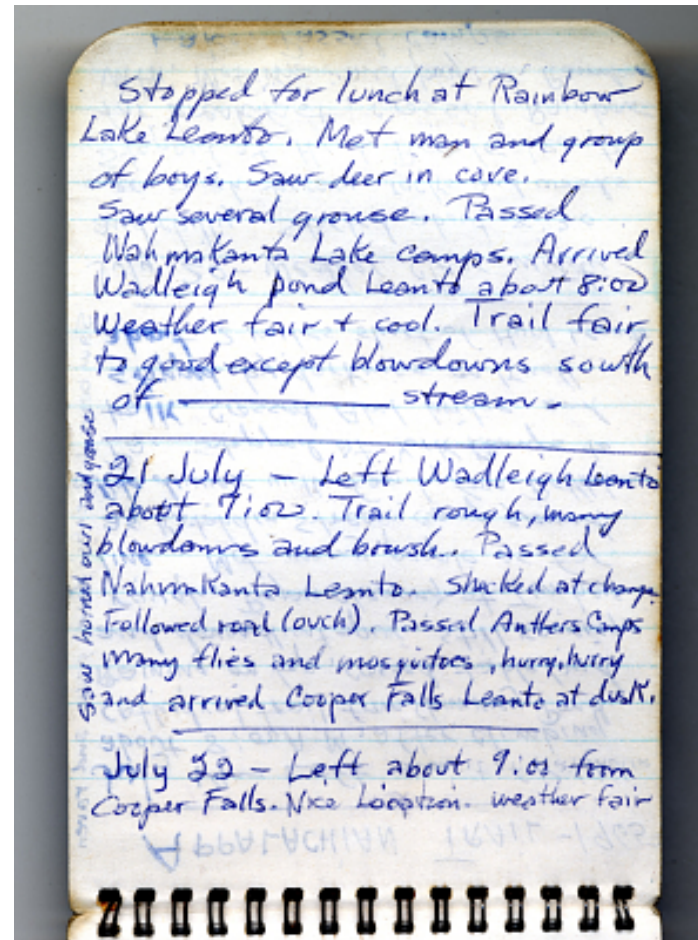 Stopped for lunch at Rainbow
Lake Leanto. Met man and group
of boys. Saw deer in cove.
Saw several grouse. Passed
Nahmakanta Lake camps. Arrived
Wadleigh pond Leanto about 8:00
Weather fair + cool. Trail fair
to good except blowdowns south
of ________ stream.
21 July - Left Wadleigh leanto
about 7:00. Trail rough, many
blowdowns and brush. Passed
Nahmakanta Leanto. at change.
Followed road (ouch). Passed Anthers Camps
Many flies and mosquitoes, hurry, hurry
and arrived Cooper Falls Leanto at dusk.
Saw horned owl and grouse
July 22 - Left about 9:00 from
Cooper Falls. Nice Location. weather fair
APPALACHIAN TRAIL - 1965